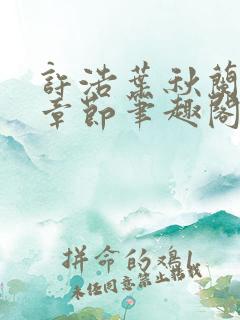 許浩葉秋蘭
章節筆趣閣
拼命的鳮l
未经同意禁止转载